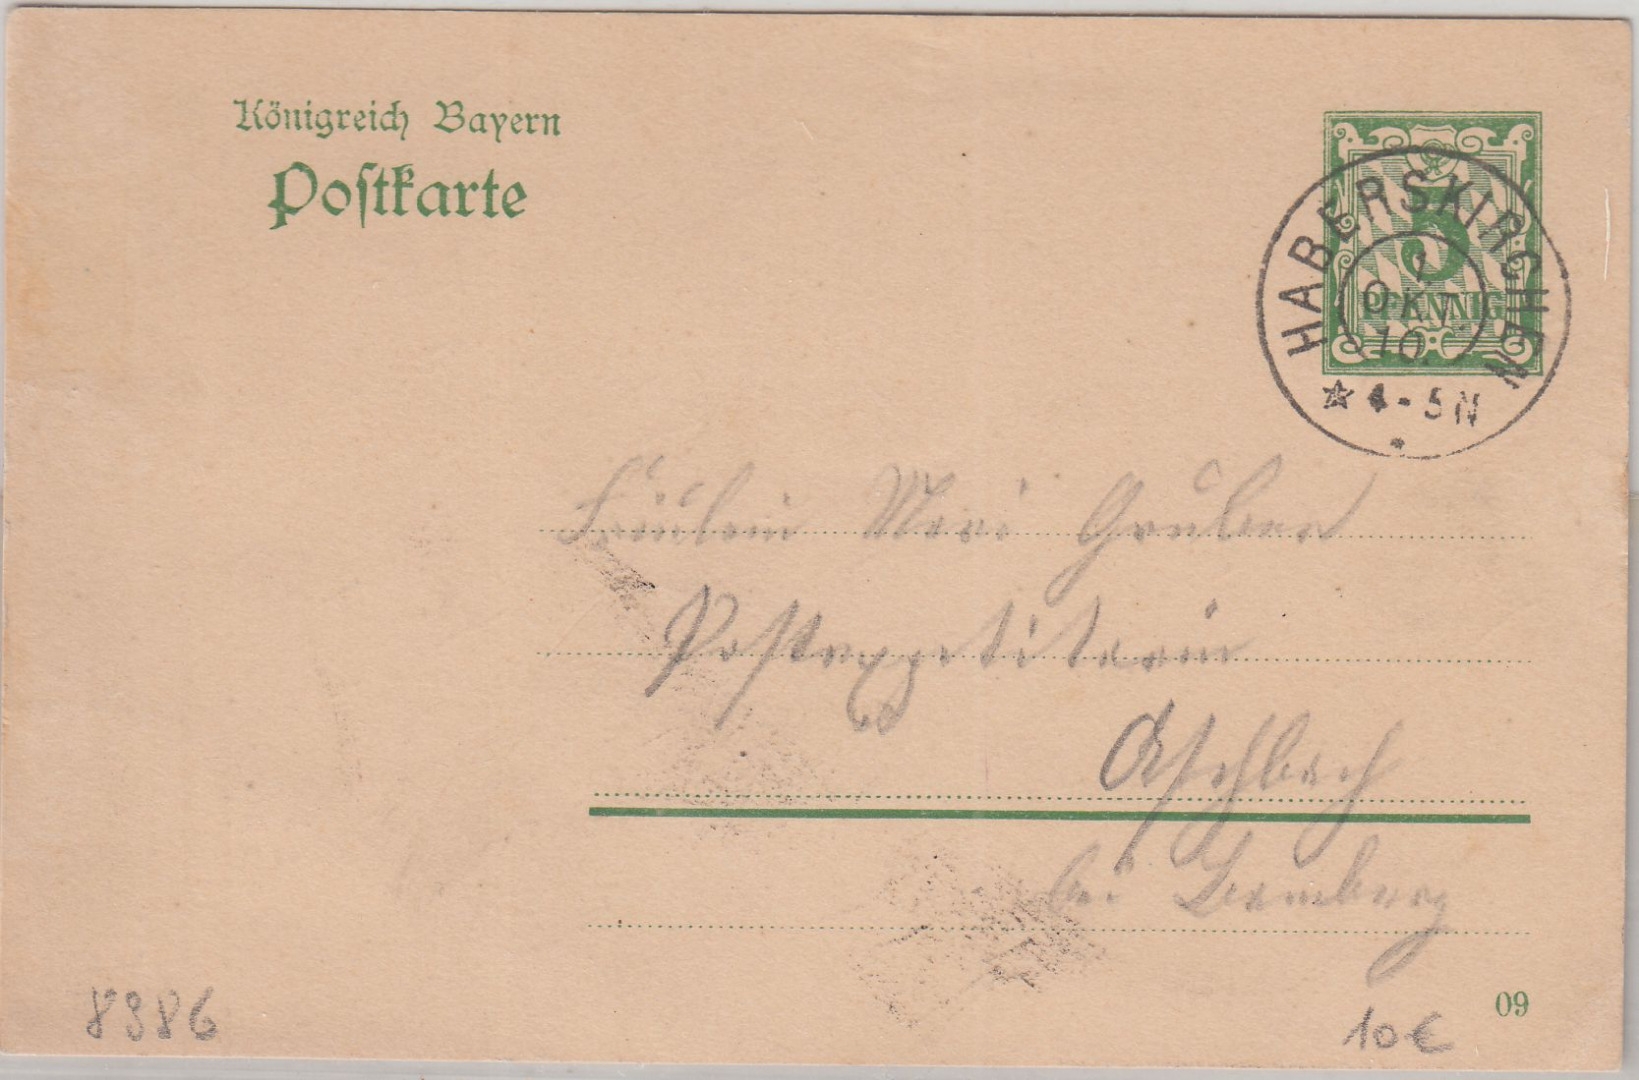 Königreich Bayern
Postkarte
5
PFENNIG
HABERSKIRCHEN
1.
OKT.
10.
4-5N
Fräulein Mari Gruber
Postexpetiterin
Aschbach
bei Bamberg
8986
10€
09